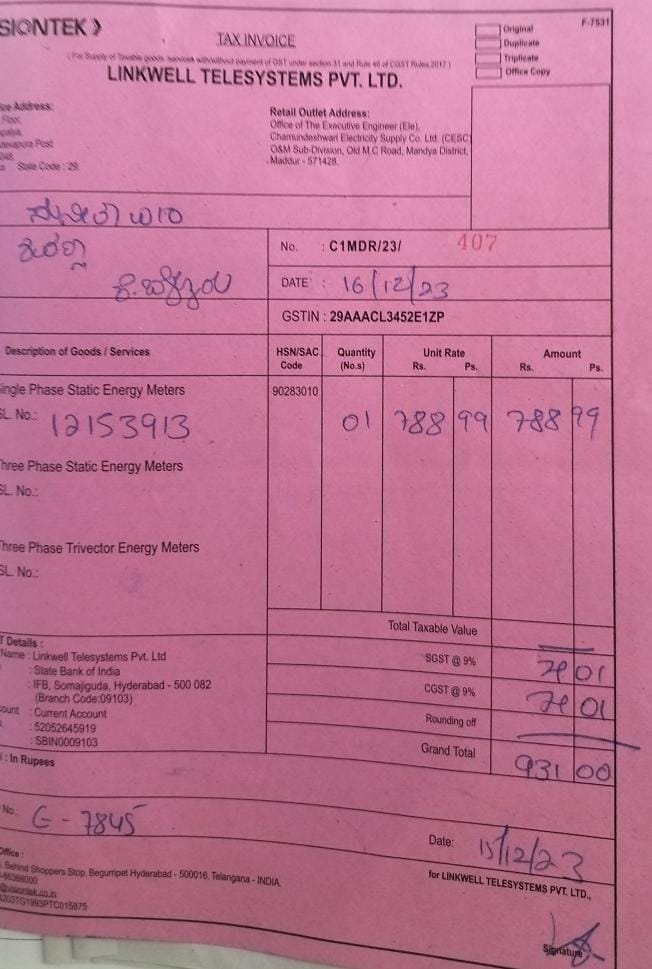 SIONTEK
F-7531
TAX INVOICE
Original
Duplicate
Triplicate
Office Copy
(For Supply of Taxable goods /services with/without payment of GST under section 31 and Rule 46 of CGST Rules,2017)
LINKWELL TELESYSTEMS PVT. LTD.
ice Address:
Floor,
palya,
devapura Post
048,
State Code : 29.
Retail Outlet Address:
Office of The Executive Engineer (Ele),
Chamundeshwari Electricity Supply Co. Ltd. (CESC)
O&M Sub-Division, Old M.C Road, Mandya District,
Maddur - 571428.
No. : C1MDR/23/ 407
DATE : 16/12/23
GSTIN : 29AAACL3452E1ZP
Description of Goods / Services
HSN/SAC Code
Quantity (No.s)
Unit Rate Rs. Ps.
Amount Rs. Ps.
ingle Phase Static Energy Meters 90283010
SL. No.: 12153913 01 788 99 788 99
Three Phase Static Energy Meters
SL. No.:
Three Phase Trivector Energy Meters
SL. No.:
Total Taxable Value
T Details :
Name : Linkwell Telesystems Pvt. Ltd
: State Bank of India
: IFB, Somajiguda, Hyderabad - 500 082
(Branch Code:09103)
ount : Current Account
: 52052645919
: SBIN0009103
SGST @ 9% 71 01
CGST @ 9% 71 01
Rounding off
Grand Total 931 00
: In Rupees
No.: G - 7845
Date: 15/12/23
Office :
Behind Shoppers Stop, Begumpet Hyderabad - 500016, Telangana - INDIA.
-66388000
@visiontek.co.in
203TG1993PTC015875
for LINKWELL TELESYSTEMS PVT. LTD.,
Signature